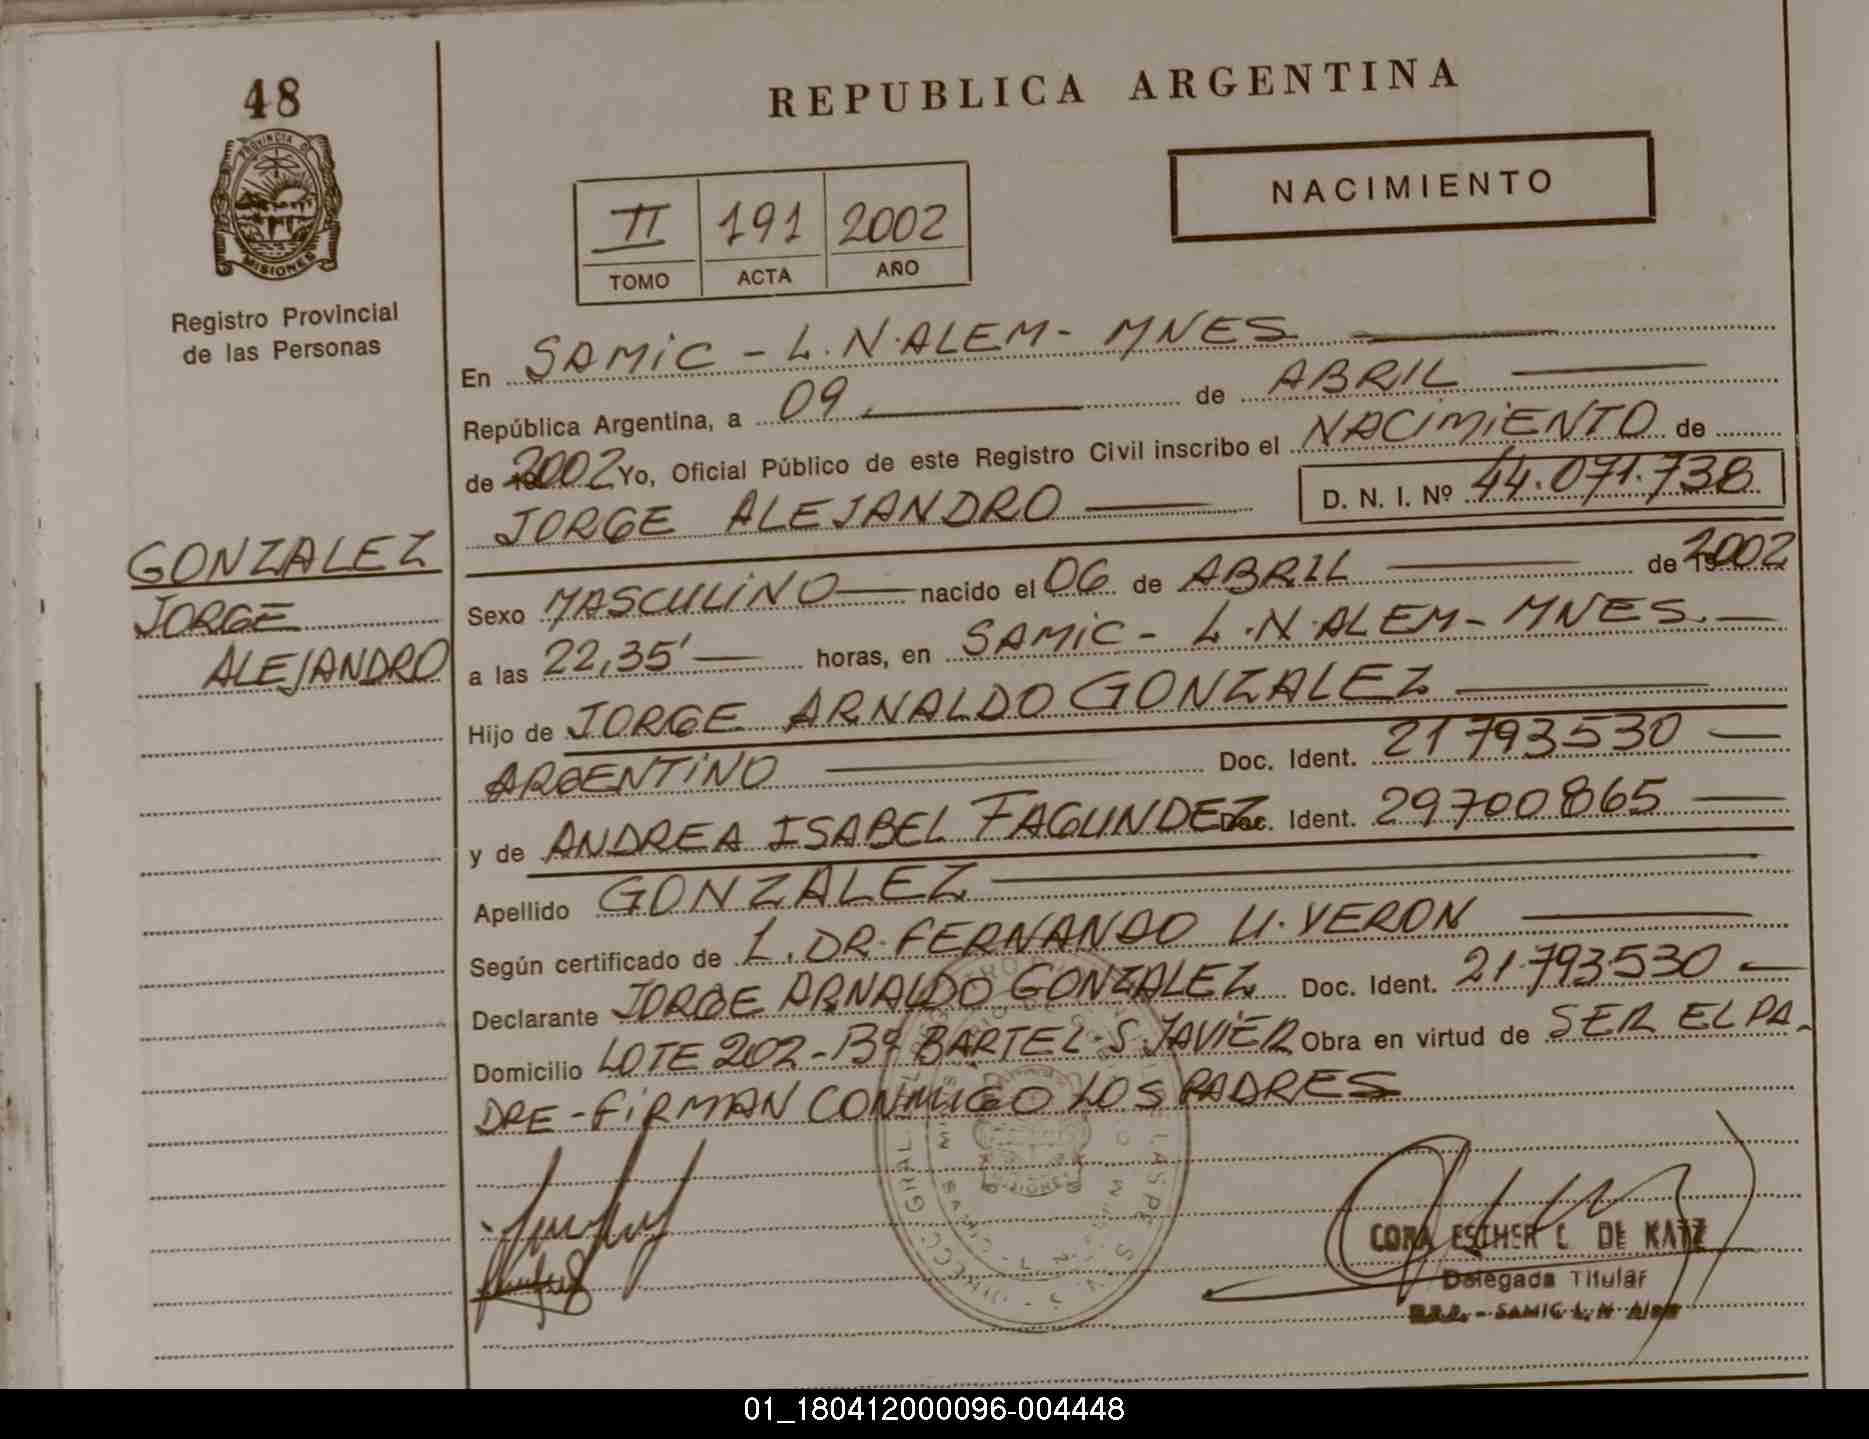 48
PROVINCIA DE
MISIONES
Registro Provincial
de las Personas
REPUBLICA ARGENTINA
NACIMIENTO
II 191 2002
TOMO ACTA AÑO
GONZALEZ
JORGE
ALEJANDRO
En SAMIC - L.N.ALEM - MNES
República Argentina, a 09 de ABRIL
de 2002 Yo, Oficial Público de este Registro Civil inscribo el NACIMIENTO de
JORGE ALEJANDRO D. N. I. Nº 44.071.738
Sexo MASCULINO nacido el 06 de ABRIL de 2002
a las 22,35' horas, en SAMIC - L.N.ALEM - MNES.
Hijo de JORGE ARNALDO GONZALEZ
ARGENTINO Doc. Ident. 21793530
y de ANDREA ISABEL FAGUNDEZ Doc. Ident. 29700865
Apellido GONZALEZ
Según certificado de L. DR. FERNANDO U. VERON
Declarante JORGE ARNALDO GONZALEZ Doc. Ident. 21.793530
Domicilio LOTE 202 - Bº BARTEL - S. JAVIER Obra en virtud de SER EL PA-
DRE - FIRMAN CONMIGO LOS PADRES
ESTHER C DE KATZ
Delegada Titular
SAMIC L. N
01_180412000096-004448